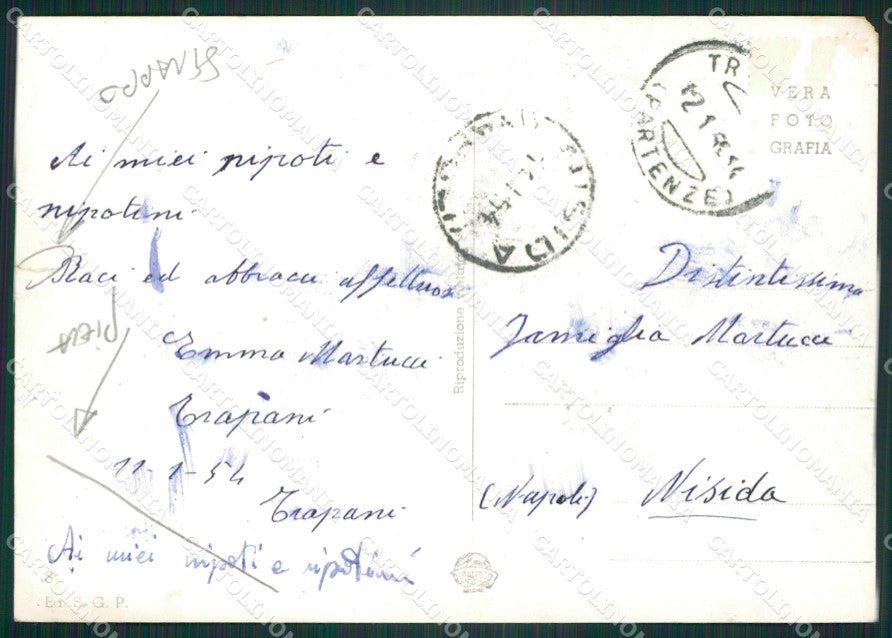 STRAPPO
Ai miei nipoti e
nipotini
Baci ed abbracci affettuosi
PIEGA
Emma Martucci
Trapani
11-1-54
Trapani
Ai miei nipoti e nipotini
Ed. S. G. P.
Riproduzione
NISIDA
TR
(PARTENZE)
12 1 54
VERA
FOTO
GRAFIA
Distintissima
Famiglia Martucci
(Napoli) Nisida
CARTOLINOMANIA